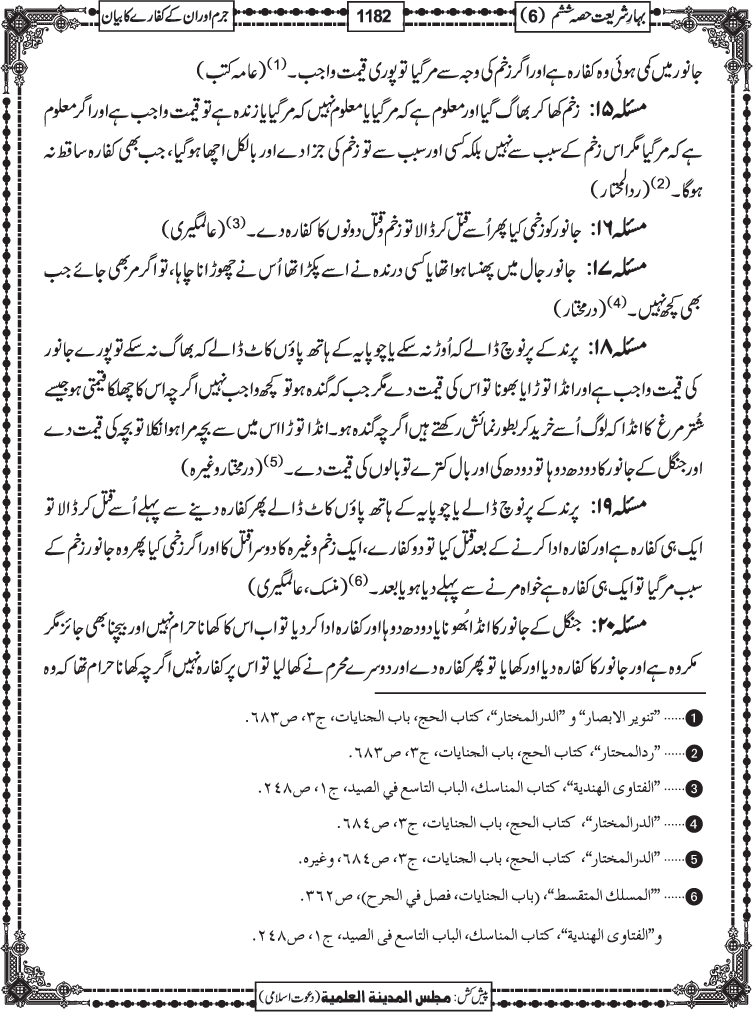 بہارِ شریعت حصہ ششم (6)
1182
جرم اور ان کے کفارے کا بیان
جانور میں کمی ہوئی وہ کفارہ ہے اور اگر زخم کی وجہ سے مرگیا تو پوری قیمت واجب۔(1) (عامہ کتب)
مسئلہ ۱۵: زخم کھا کر بھاگ گیا اور معلوم ہے کہ مرگیا یا معلوم نہیں کہ مرگیا یا زندہ ہے تو قیمت واجب ہے اور اگر معلوم
ہے کہ مرگیا مگر اس زخم کے سبب سے نہیں بلکہ کسی اور سبب سے تو زخم کی جزا دے اور بالکل اچھا ہوگیا، جب بھی کفارہ ساقط نہ
ہوگا۔(2) (ردالمحتار)
مسئلہ ۱۶: جانور کو زخمی کیا پھر اُسے قتل کر ڈالا تو زخم و قتل دونوں کا کفارہ دے۔(3) (عالمگیری)
مسئلہ ۱۷: جانور جال میں پھنسا ہوا تھا یا کسی درندہ نے اسے پکڑا تھا اُس نے چھوڑانا چاہا، تو اگر مر بھی جائے جب
بھی کچھ نہیں۔(4) (درمختار)
مسئلہ ۱۸: پرند کے پر نوچ ڈالے کہ اُوڑ نہ سکے یا چوپایہ کے ہاتھ پاؤں کاٹ ڈالے کہ بھاگ نہ سکے تو پورے جانور
کی قیمت واجب ہے اور انڈا توڑا یا بھونا تو اس کی قیمت دے مگر جب کہ گندہ ہو تو کچھ واجب نہیں اگرچہ اس کا چھلکا قیمتی ہو جیسے
شُتر مرغ کا انڈا کہ لوگ اُسے خرید کر بطور نمائش رکھتے ہیں اگرچہ گندہ ہو۔ انڈا توڑا اس میں سے بچہ مرا ہوا نکلا تو بچہ کی قیمت دے
اور جنگل کے جانور کا دودھ دوہا تو دودھ کی اور بال کترے تو بالوں کی قیمت دے۔(5) (درمختار وغیرہ)
مسئلہ ۱۹: پرند کے پر نوچ ڈالے یا چوپایہ کے ہاتھ پاؤں کاٹ ڈالے پھر کفارہ دینے سے پہلے اُسے قتل کر ڈالا تو
ایک ہی کفارہ ہے اور کفارہ ادا کرنے کے بعد قتل کیا تو دو کفارے، ایک زخم وغیرہ کا دوسرا قتل کا اور اگر زخمی کیا پھر وہ جانور زخم کے
سبب مرگیا تو ایک ہی کفارہ ہے خواہ مرنے سے پہلے دیا ہو یا بعد۔(6) (منسک، عالمگیری)
مسئلہ ۲۰: جنگل کے جانور کا انڈا بُھونا یا دودھ دوہا اور کفارہ ادا کر دیا تو اب اس کا کھانا حرام نہیں اور بیچنا بھی جائز مگر
مکروہ ہے اور جانور کا کفارہ دیا اور کھایا تو پھر کفارہ دے اور دوسرے محرم نے کھالیا تو اس پر کفارہ نہیں اگرچہ کھانا حرام تھا کہ وہ
1 ...... ”تنوير الابصار“ و ”الدرالمختار“، كتاب الحج، باب الجنايات، ج٣، ص٦٨٣.
2 ...... ”ردالمحتار“، كتاب الحج، باب الجنايات، ج٣، ص٦٨٣.
3 ...... ”الفتاوى الهندية“، كتاب المناسك، الباب التاسع في الصيد، ج١، ص٢٤٨.
4 ...... ”الدرالمختار“، كتاب الحج، باب الجنايات، ج٣، ص٦٨٤.
5 ...... ”الدرالمختار“، كتاب الحج، باب الجنايات، ج٣، ص٦٨٤، وغيره.
6 ...... ”“المسلك المتقسط“، (باب الجنايات، فصل في الجرح)، ص٣٦٢.
و”الفتاوى الهندية“، كتاب المناسك، الباب التاسع فى الصيد، ج١، ص٢٤٨.
پیش کش: مجلس المدينة العلمية (دعوت اسلامی)